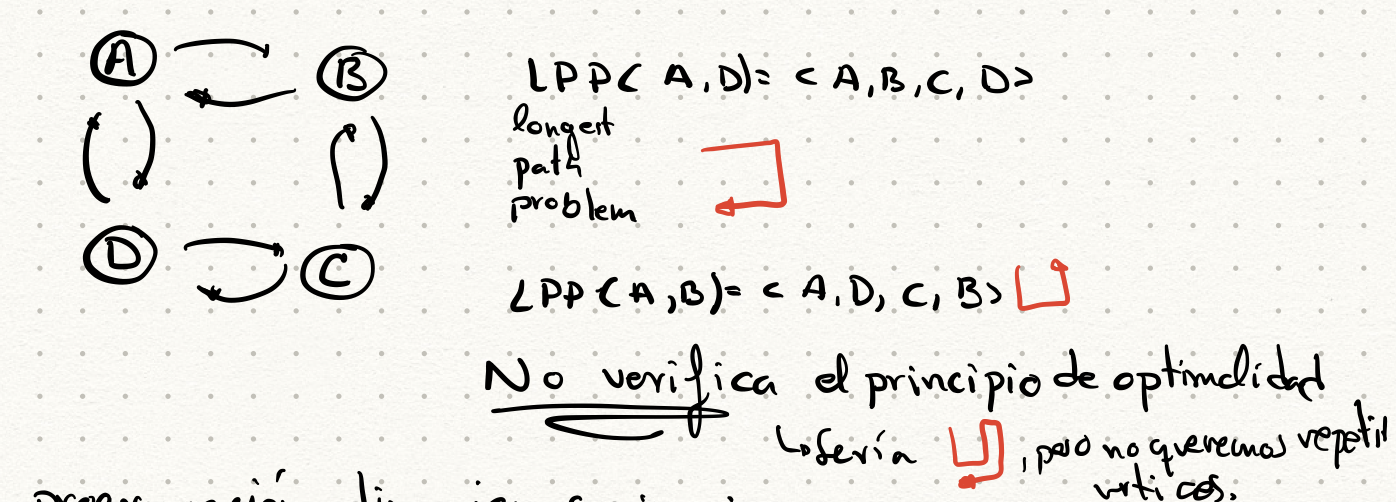 A
B
D
C
LPP( A,D)= < A,B,C, D>
longest
path
problem
LPP(A,B)= < A,D, C, B>
No verifica el principio de optimalidad
↳ Sería , pero no queremos repetir
vrticos.